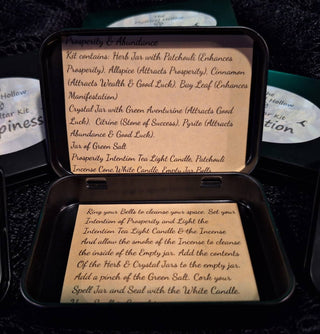 The
Hollow
Altar Kit
Happiness
Hollow
Prosperity & Abundance
Kit contains: Herb Jar with Patchouli (Enhances
Prosperity), Allspice (Attracts Prosperity), Cinnamon
(Attracts Wealth & Good Luck), Bay Leaf (Enhances
Manifestation)
Crystal Jar with Green Aventurine (Attracts Good
Luck), Citrine (Stone of Success), Pyrite (Attracts
Abundance & Good Luck).
Jar of Green Salt
Prosperity Intention Tea Light Candle, Patchouli
Incense Cone White Candle, Empty Jar Bells
Ring your Bells to cleanse your space. Set your
Intention of Prosperity and Light the
Intention Tea Light Candle & the Incense
And allow the smoke of the Incense to cleanse
the inside of the Empty jar. Add the contents
Of the Herb & Crystal Jars to the empty jar.
Add a pinch of the Green Salt. Cork your
Spell Jar and Seal with the White Candle.